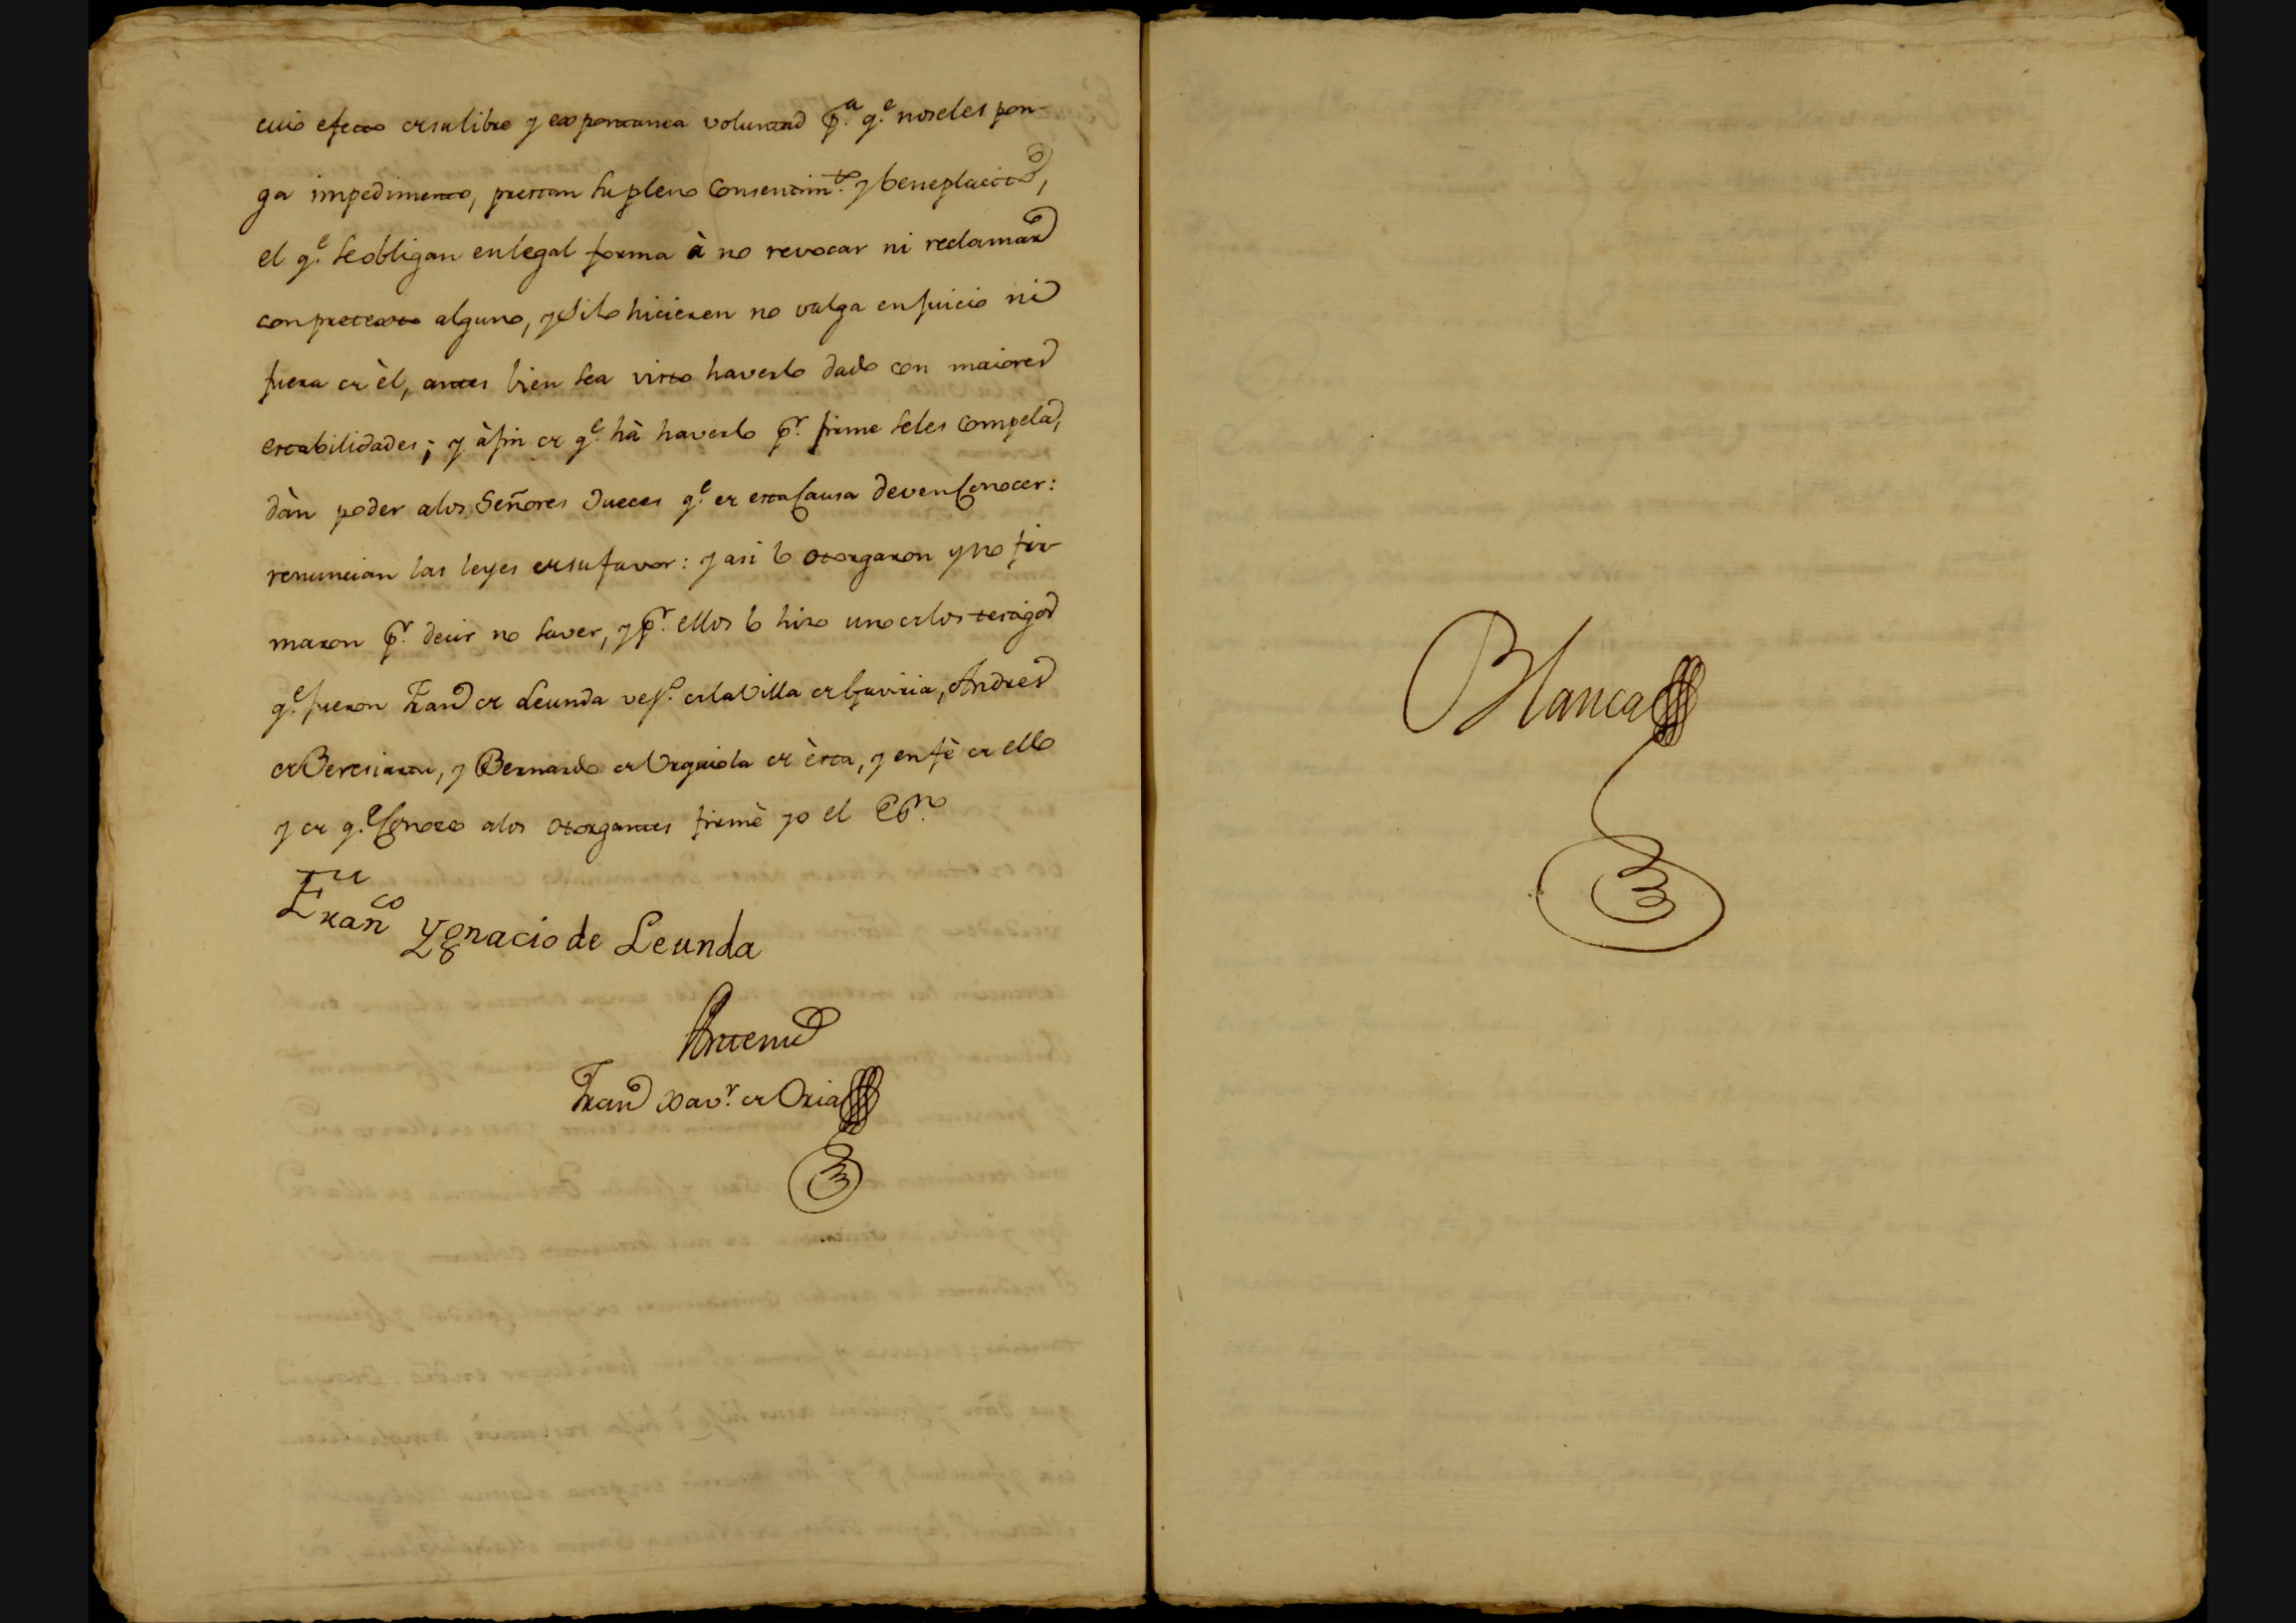 cuio efecto de su libre y expontanea voluntad p.ª q.e no se les pon-
ga impedimento, prestan su pleno Consentim.to y beneplacito,
el q.e se obligan en legal forma à no revocar ni reclamar
con pretexto alguno, y si lo hicieren no valga en juicio ni
fuera de èl, antes bien sea visto haverlo dado con maiores
estabilidades; y à fin de q.e hà haverlo p.r firme se les Compela,
dàn poder a los Señores Jueces q.e de esta Causa deven Conocer:
renuncian las leyes de su favor: y asi lo otorgaron y no fir-
maron p.r decir no saver, y p.r ellos lo hizo uno de los testigos
q.e fueron Fran.co de Leunda vez.o de la Villa de Guviria, Andres
de Veresiartu, y Bernardo de Urquiola de èsta, y en fè de ello
y de q.e Conozco a los otorgantes firmè yo el Es.no
T.u
Fran.co Ygnacio de Leunda
Antemi
Fran.co Xav.r de Oria
Blanca